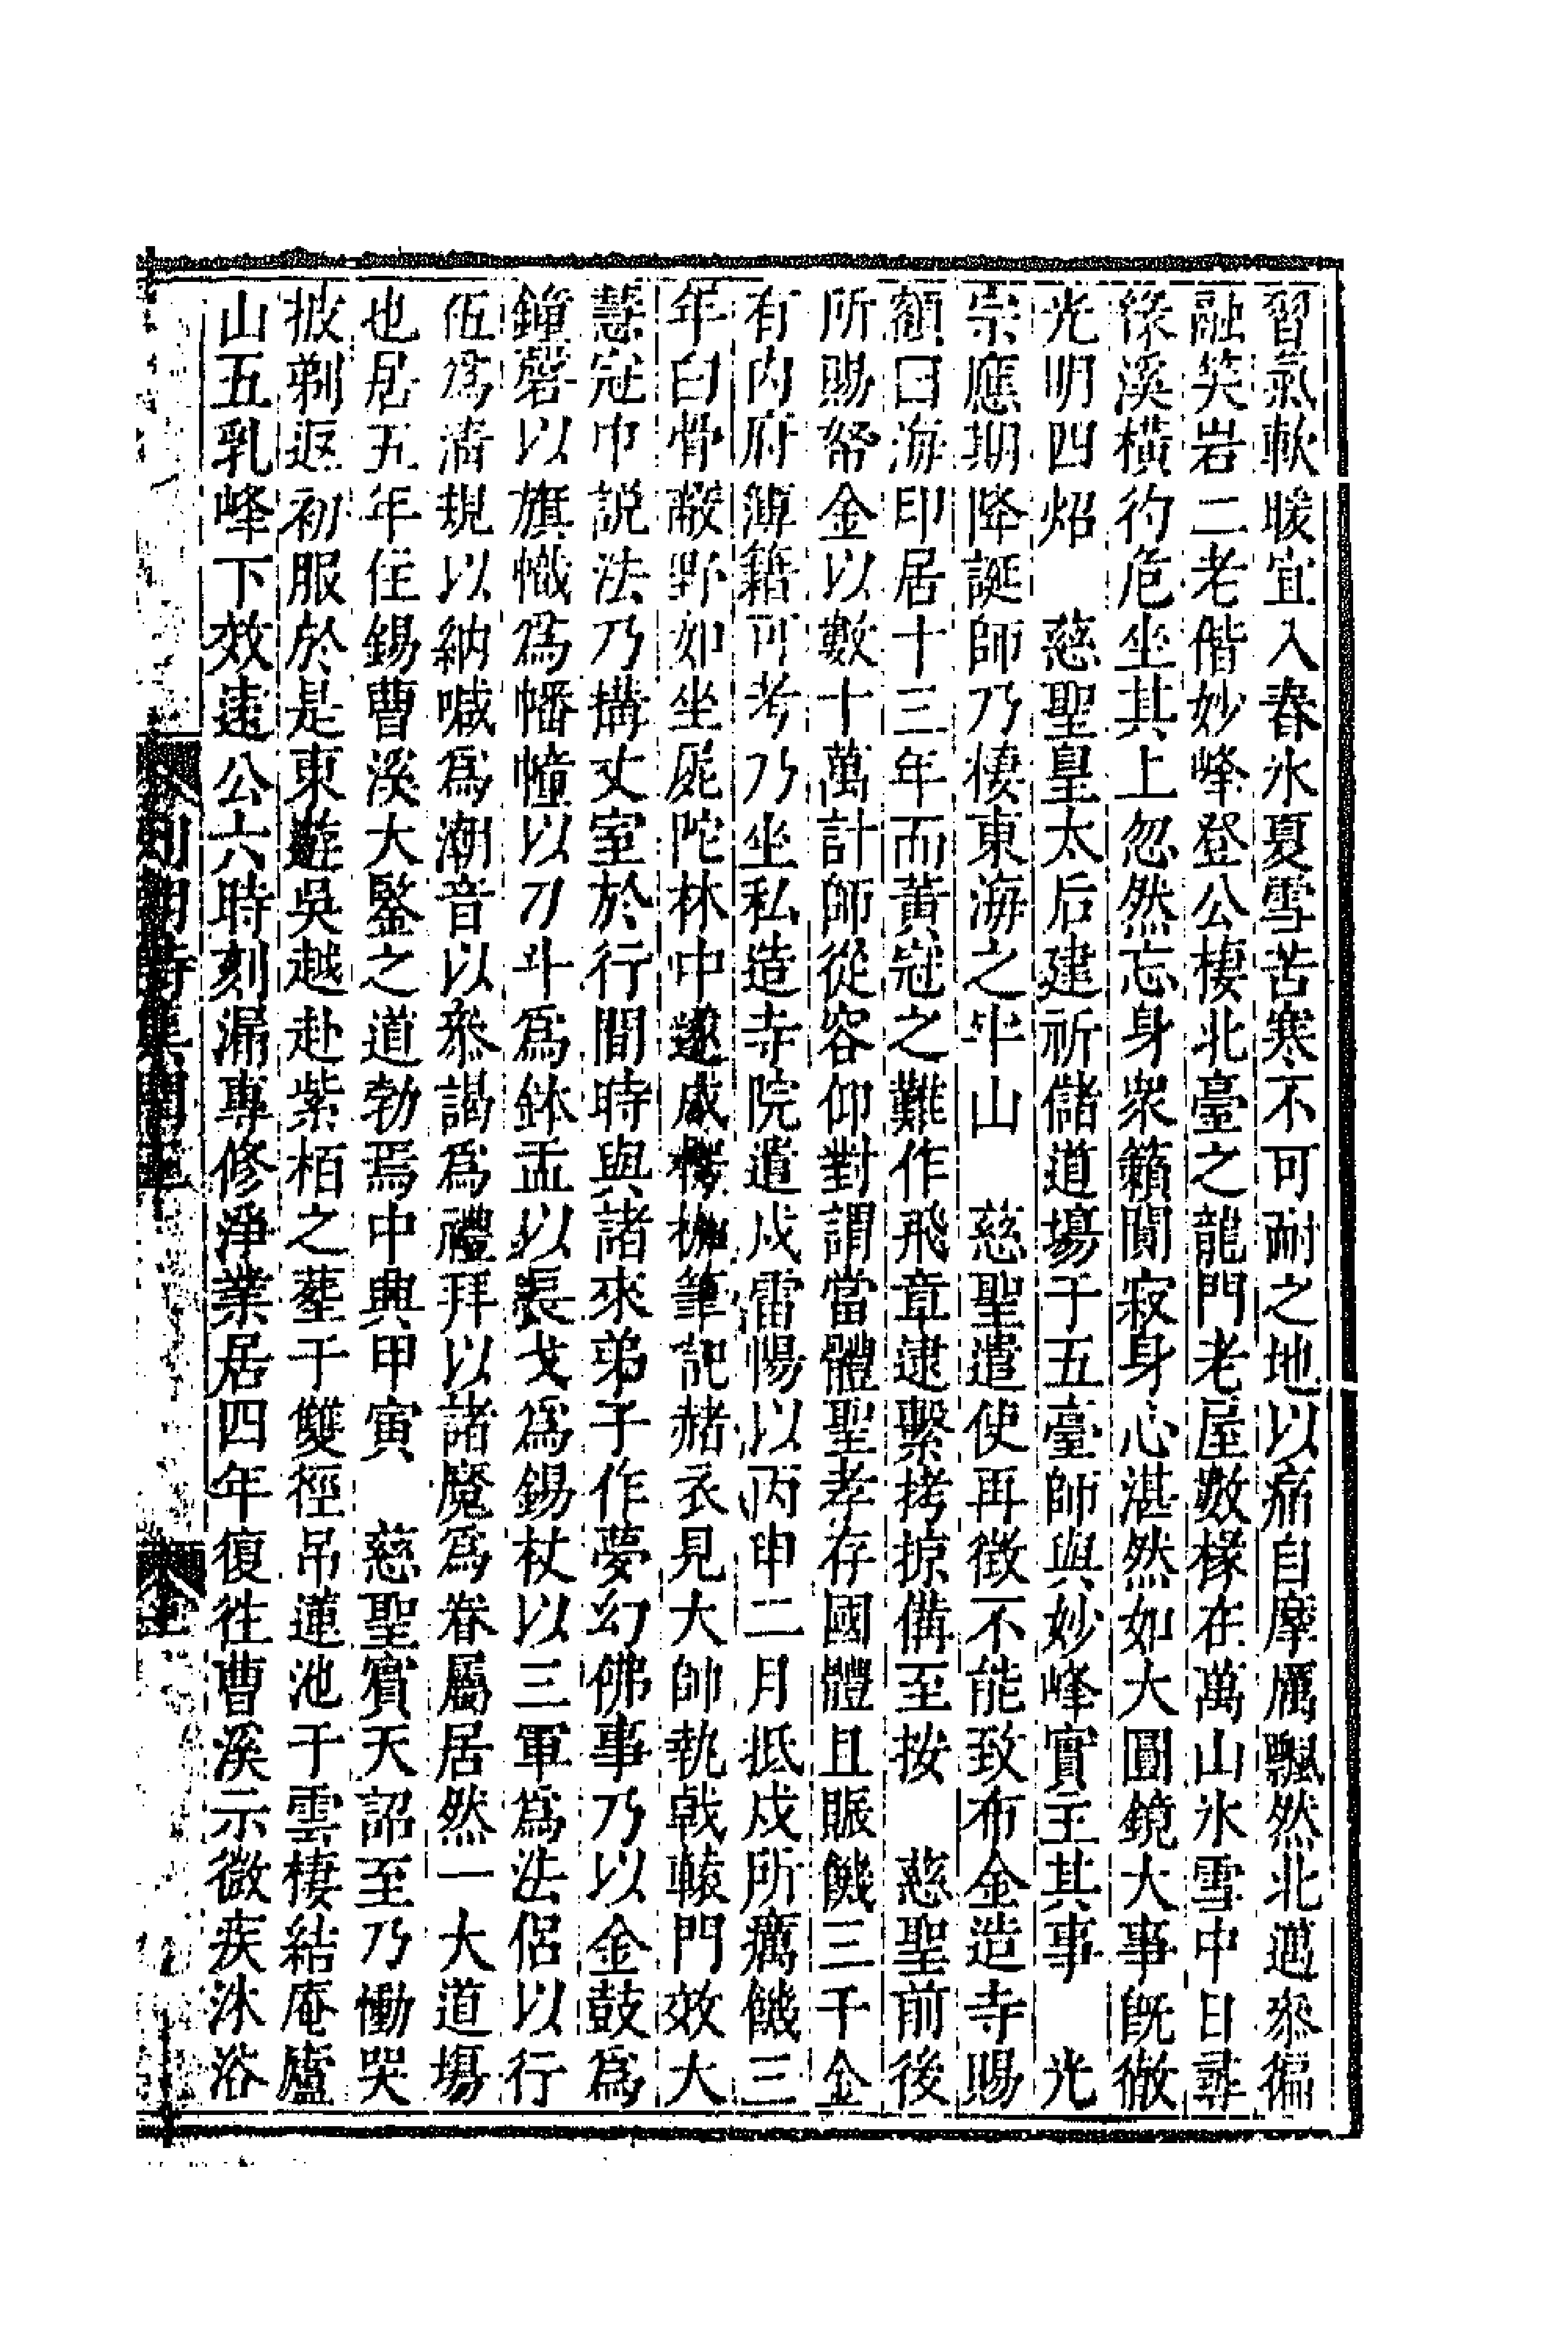 習氣軟暖宜入春氷夏雪苦寒不可耐之地以痛自摩厲飄然北邁叅徧
融笑岩二老偕妙峰登公棲北臺之龍門老屋數椽在萬山氷雪中日尋
緣溪橫彴危坐其上忽然忘身衆籟闃寂身心湛然如大圓鏡大事旣徹
光明四炤　慈聖皇太后建祈儲道塲于五臺師與妙峰實主其事　光
宗應期降誕師乃棲東海之牢山　慈聖遣使再徴不能致布金造寺賜
額曰海印居十三年而黃冠之難作飛章逮繫拷掠備至按　慈聖前後
所賜帑金以數十萬計師從容仰對謂當體聖孝存國體且賑饑三千金
有內府簿籍可考乃坐私造寺院遣戍雷陽以丙申二月抵戍所癘饑三
年白骨蔽野如坐屍陀林中遂成楞枷筆記赭衣見大帥執戟轅門效大
慧冠巾説法乃搆丈室於行間時與諸來弟子作夢幻佛事乃以金鼓爲
鐘磬以旗幟爲幡幢以刁斗爲鉢盂以長戈爲錫杖以三軍爲法侶以行
伍爲清規以納喊爲潮音以叅謁爲禮拜以諸魔爲眷屬居然一大道塲
也居五年住錫曹溪大鑒之道勃焉中興甲寅　慈聖賓天詔至乃慟哭
披剃返初服於是東遊吳越赴紫栢之塟于雙徑吊蓮池于雲棲結庵廬
山五乳峰下效遠公六時刻漏專修淨業居四年復徃曹溪示微疾沐浴
列朝詩集閏三